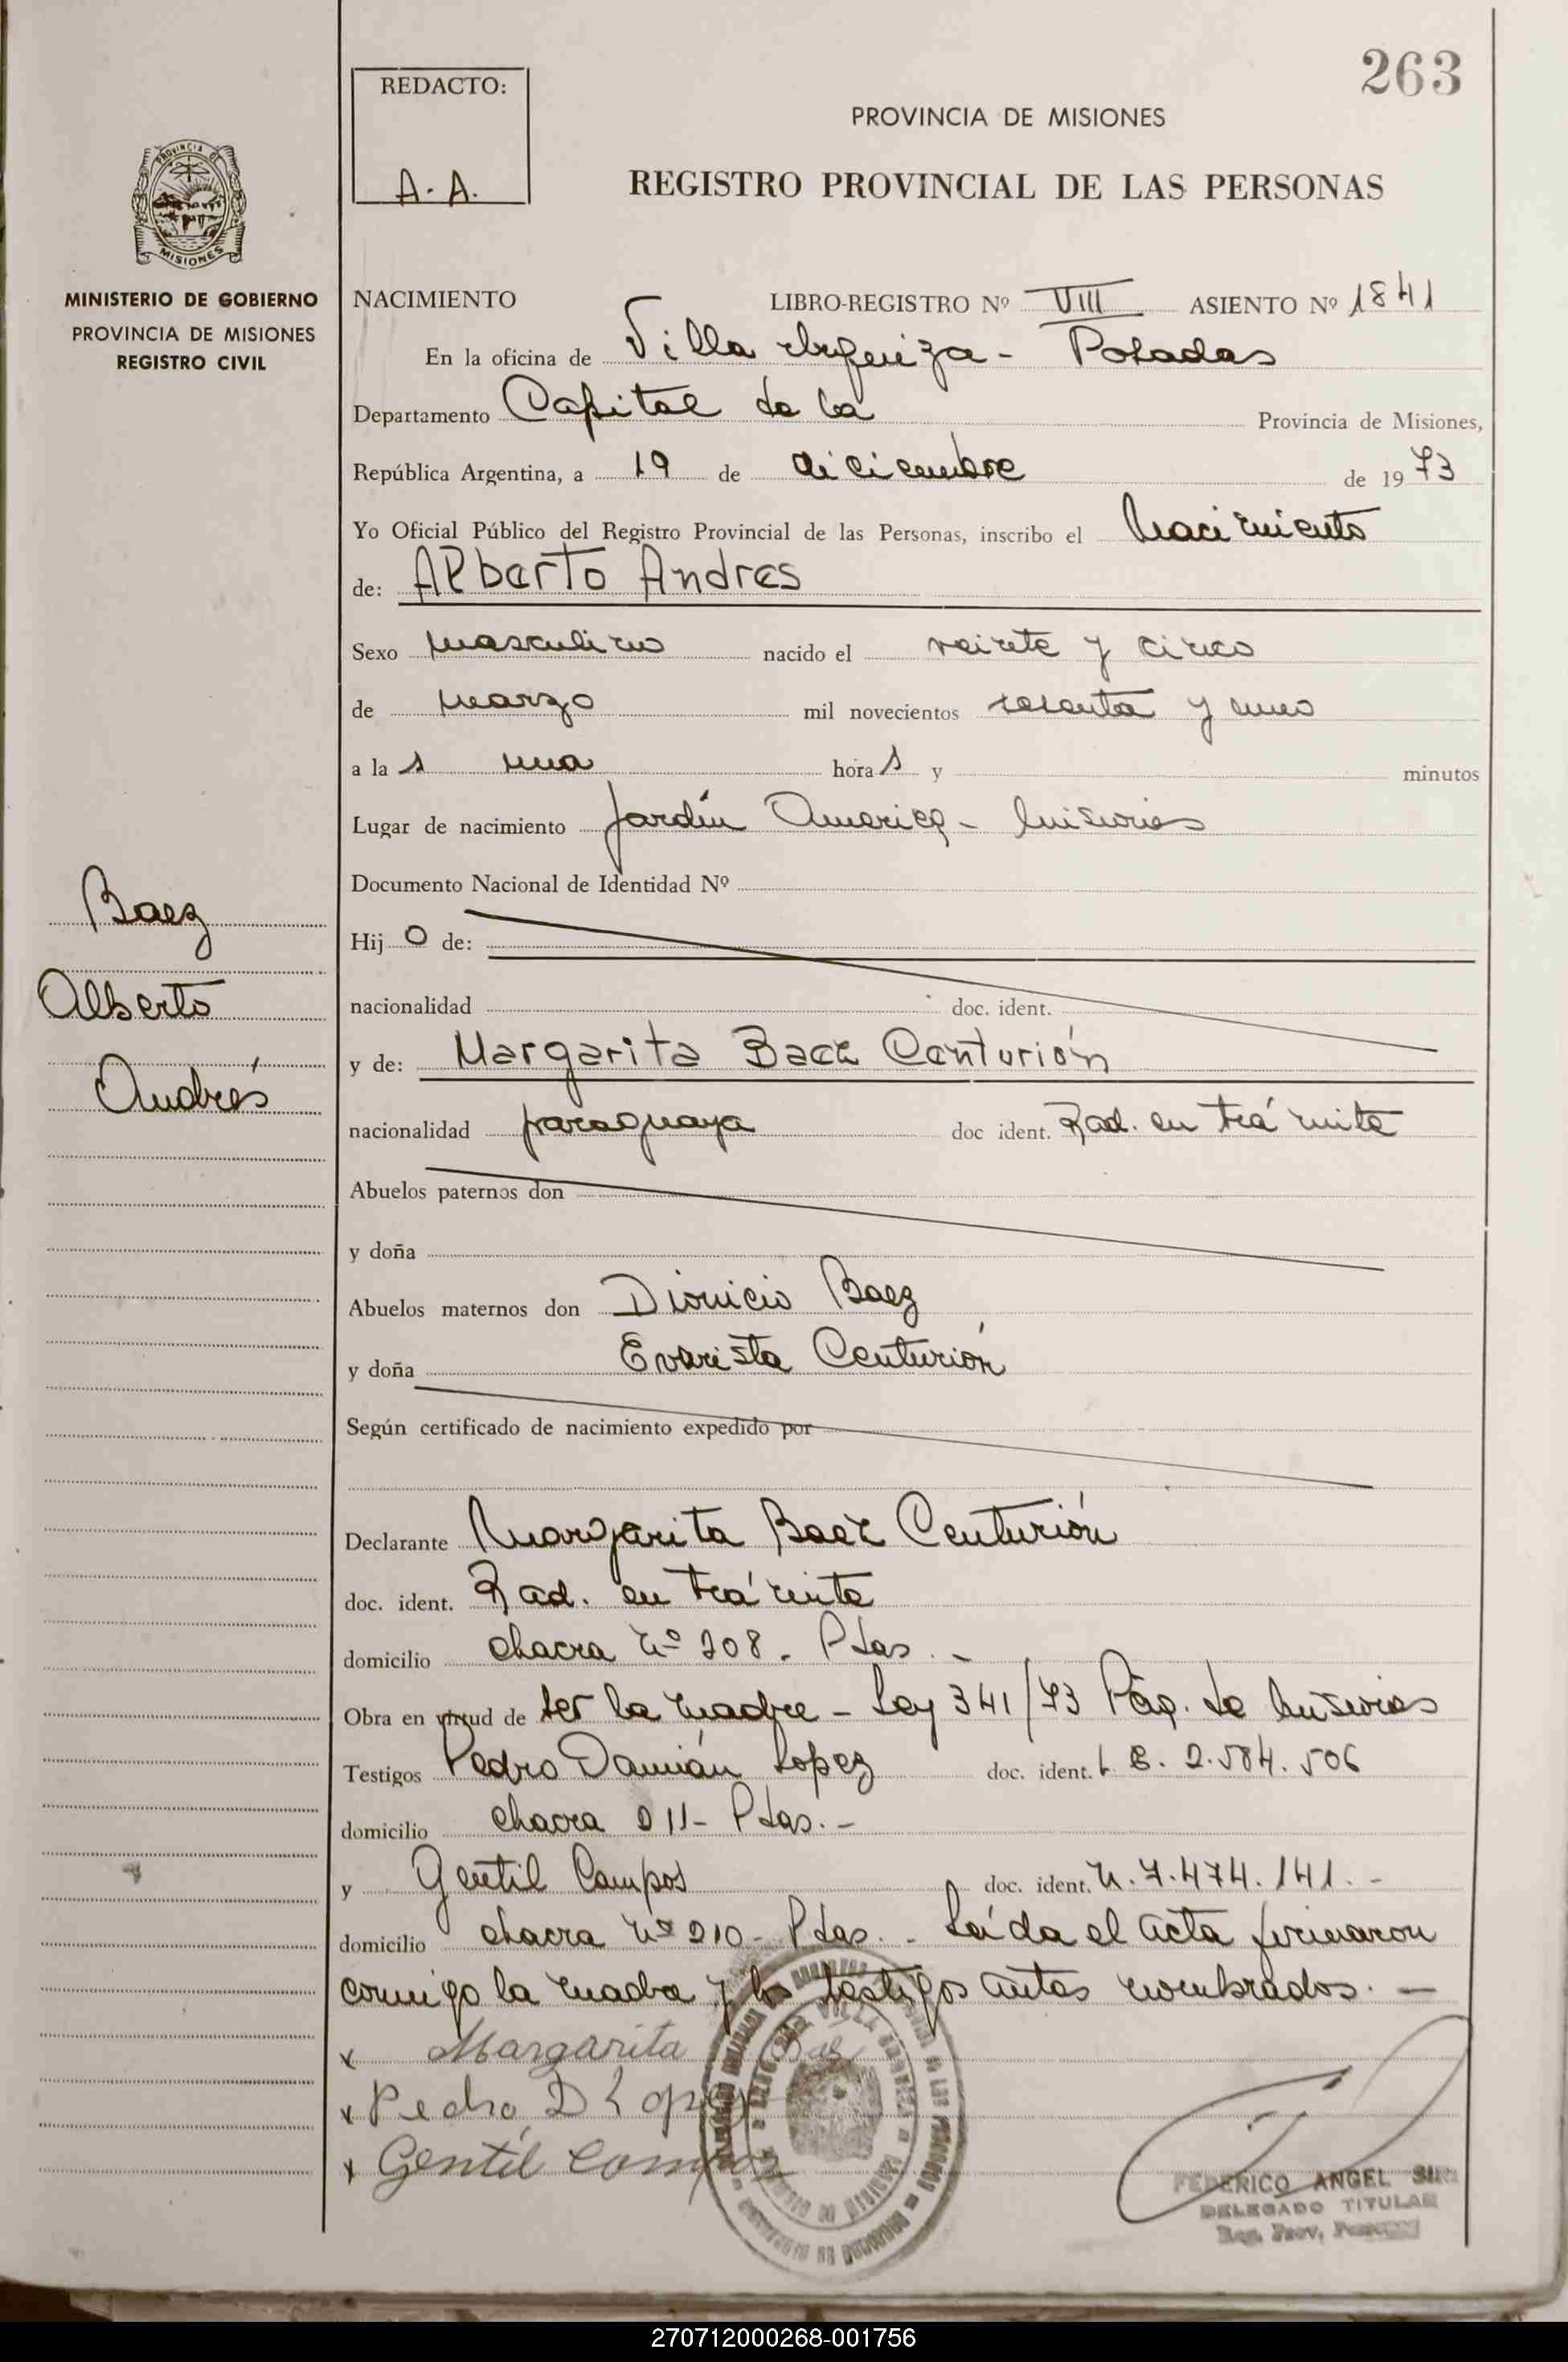 263
REDACTO:
A. A.
PROVINCIA DE MISIONES
REGISTRO PROVINCIAL DE LAS PERSONAS
PROVINCIA DE
MISIONES
MINISTERIO DE GOBIERNO
PROVINCIA DE MISIONES
REGISTRO CIVIL
NACIMIENTO LIBRO-REGISTRO Nº VIII ASIENTO Nº 1841
En la oficina de Villa Urquiza - Posadas
Departamento Capital de la Provincia de Misiones,
República Argentina, a 19 de diciembre de 1973
Yo Oficial Público del Registro Provincial de las Personas, inscribo el Nacimiento
de: Alberto Andres
Sexo masculino nacido el veinte y cinco
de marzo mil novecientos sesenta y uno
a la s una hora s y minutos
Lugar de nacimiento Jardín America - Misiones
Documento Nacional de Identidad Nº
Baez
Alberto
Andrés
Hij o de:
nacionalidad doc. ident.
y de: Margarita Baez Centurión
nacionalidad paraguaya doc ident. Rad. en trámite
Abuelos paternos don
y doña
Abuelos maternos don Dionicio Baez
y doña Evarista Centurión
Según certificado de nacimiento expedido por
Declarante Margarita Baez Centurión
doc. ident. Rad. en trámite
domicilio chacra Nº 208. Pdas. -
Obra en virtud de ser la madre - Ley 341/73 de Misiones
Testigos Pedro Damián Lopez doc. ident. L. E. 2.584.506
domicilio chacra 211- Pdas. -
y Gentil Campos doc. ident. N. 7.474.141. -
domicilio chacra Nº 210- Pdas. - Leída el acta firmaron
conmigo la madre y los testigos antes nombrados. -
x Margarita Baez
x Pedro D Lopez
x Gentil Campos
FEDERICO ANGEL
DELEGADO TITULAR
Reg. Prov.
270712000268-001756